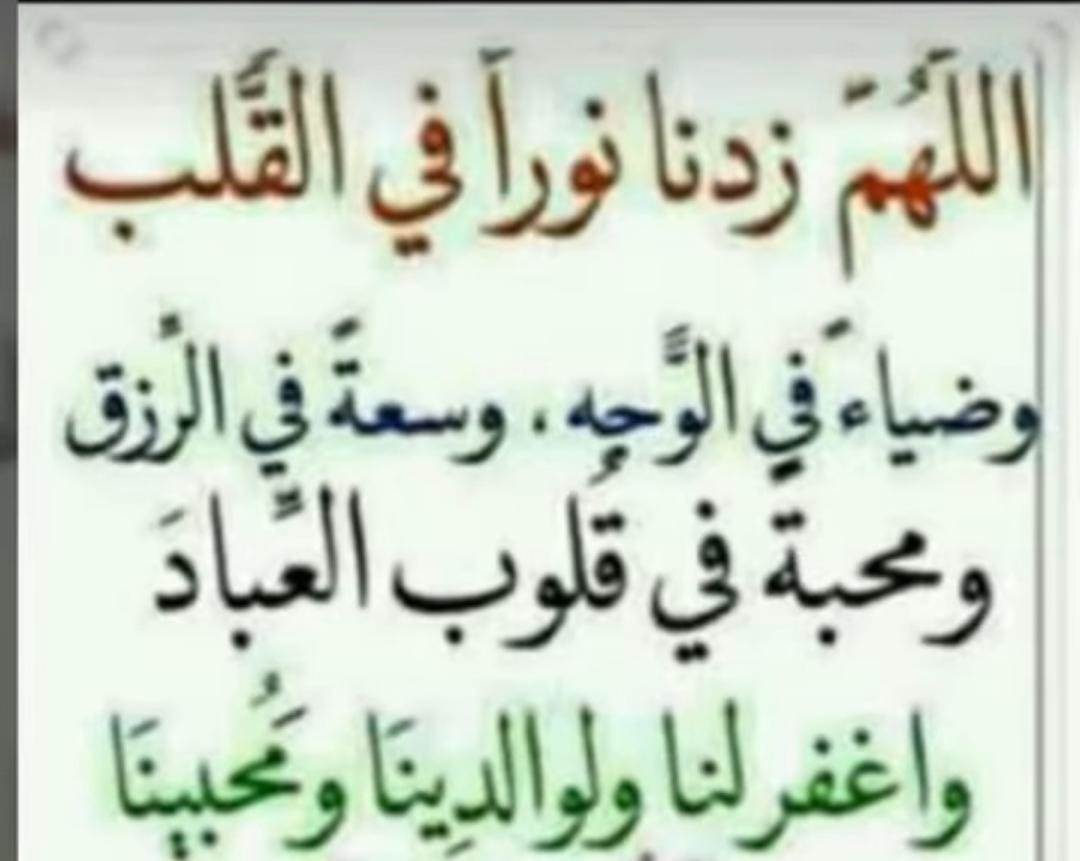 اللَهُمّ زدنا نوراً في القَّلب
وضياءً في الوَّجه ، وسعةً في الرزق
ومحبةً في قُلوب العَّبادَ
واغفر لنا ولوالدِينَا ومُحَبيِنَا